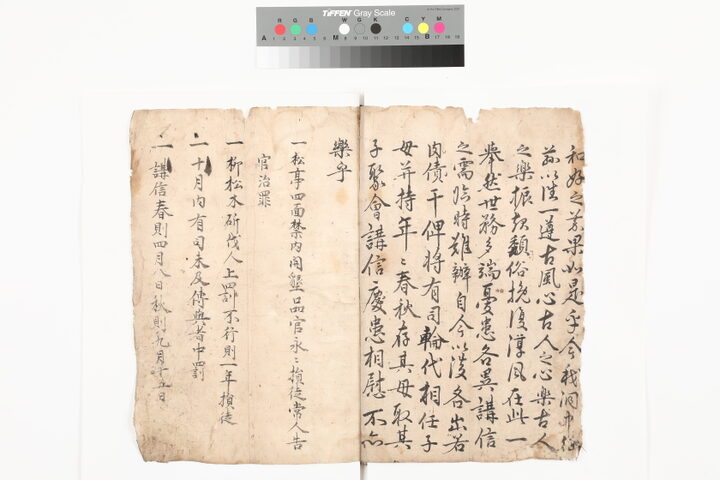 TIFFEN Gray Scale
R G B W G K C Y M
A 1 2 3 4 5 6 M 8 9 10 11 12 13 14 15 B 17 18 19
和好之 果如是乎今我洞中
以 一遵古風心古人之心樂古人
之樂振起頹俗挽復淳風在此一
擧然世務多端憂患各異講信
之需臨時難辦自今以後各出若
肉債干俾將有司輪代相任子
母并持年〻春秋存其母取其
子聚會講信慶患相慰不亦
樂乎
一松亭四面禁內開墾品官永〻損徒常人告
官治罪
一柳松木斫伐人上罰不行則一年損徒
一十月內有司未及傳與者中罰
一講信春則四月八日秋則九月十五日